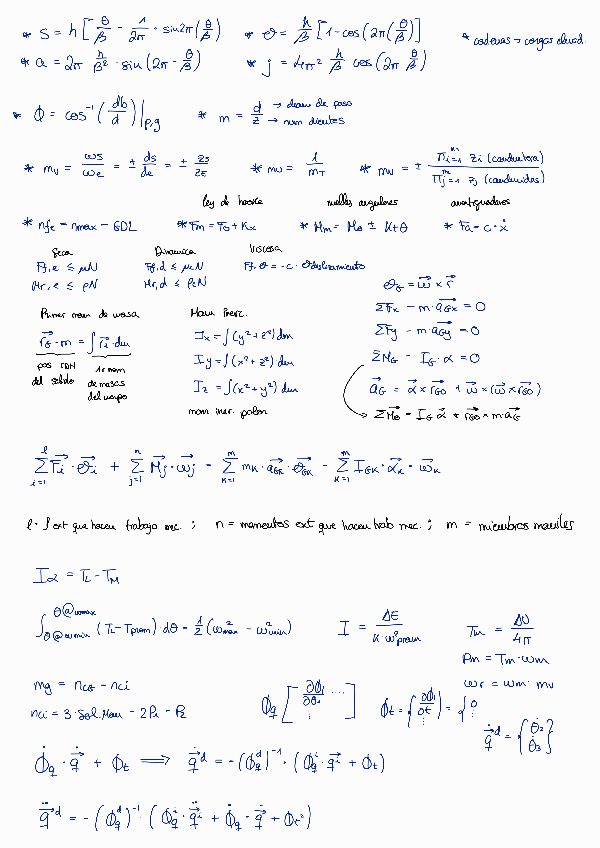 * S = h [ θ/β - 1/2π · sin2π (θ/β)   * v = h/β [1-cos (2π (θ/β)]   * cadenas → cargas elevad.
* a = 2π h/β² · sin (2π · θ/β)   * j = 4π² h/β cos (2π θ/β)
* ϕ = cos⁻¹ (db/d)|p,g   * m = d/z → diam de paso → num dientes
* mv = ωs/ωe = ± ds/de = ± zs/ze   * mv = 1/mT   * mv = ± Π i=1 zi (conductora) / Π j=1 zj (conducidas)
ley de hooke   muelles angulares   amortiguadores
* nfc = nmax - GDL   * Fm = F0 + Kx   * Mm = M0 ± Ktθ   * Fa = c · ẋ
Seca   Dinamica   Viscosa
Ff,e ≤ μN   Ff,d ≤ μcN   Ff,v = -c · v deslizamiento
Mr,e ≤ ρN   Mr,d ≤ ρcN   vg = ω x r
Primer mom de masa   Mom Inerc.   ΣFx - m·aGx = 0
rG · m = ∫ ri · dm   Ix = ∫(y²+z²)dm   ΣFy - m·aGy = 0
pos CDM del solido   1r mom de masas del cuerpo   Iy = ∫(x²+z²)dm   ΣMG - IG · α = 0
Iz = ∫(x²+y²)dm   aG = α x rGO + ω x (ω x rGO)
mom iner. polar   ΣMo - IG α + rGO x m·aG
Σ i=1 Fi · vi + Σ j=1 n Mj · ωj - Σ k=1 m mk · aGk · vGk - Σ k=1 m IGK · αk · ωk
l = f ext que hacen trabajo mec. ; n = momentos ext que hacen trab mec. ; m = miembros moviles
Iα = TL - TM
∫ θ@ωmin θ@ωmax (TL - Tprom) · dθ = 1/2 (ω²max - ω²min)   I = ΔE / K · ω²prom   Tm = ΔU / 4π
Pm = Tm · ωm
mg = nCG - nci   ωr = ωm · mv
nci = 3 · Sol.Mov - 2P1 - P2   ϕq [ ∂ϕ1/∂θ2 ....   ϕt = { ∂ϕ1/∂t } = { 0
q̇ d = { θ̇2 θ̇3 }
ϕ̇q · q̇ + ϕt ⟹ q̇ d = - (ϕq d)⁻¹ · (ϕq i · q̇ i + ϕt)
q̈ d = - (ϕq d)⁻¹ (ϕq i · q̈ i + ϕ̇q · q̇ + ϕt²)